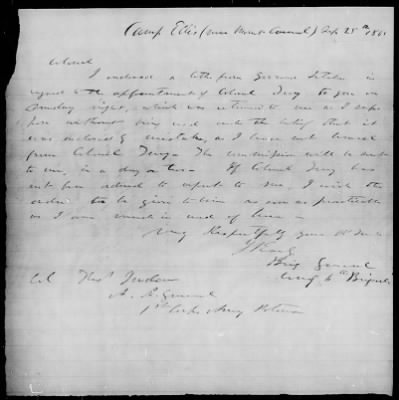 Camp Ellis (near Munson's) Sep 28th 1861
Colonel
I enclosed a letter from General in
regard to the appointment of Colonel to you on
Sunday night, which was returned to me as I sup-
pose without being read under the belief that it
was enclosed by mistake, as I have not heard
from Colonel The commission will be sent
to me, in a day or two. If Colonel has
not been ordered to report to me, I wish the
order to be given to him as soon as practicable
as I am much in need of him
Very Respectfully your Obt Svt
J Early
Brig General
Comdg 6th Brigade
Col Thos Jordan
A. A. General
1st Corps Army Potomac